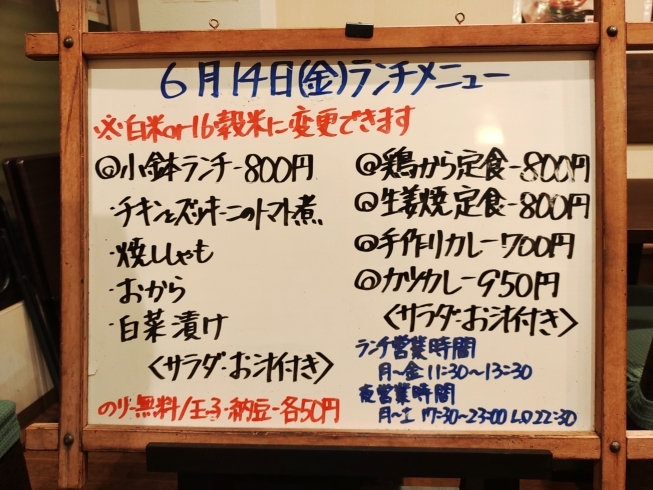 6月14日(金)ランチメニュー
※白米or16穀米に変更できます
@小鉢ランチ-800円
・チキンとズッキーニのトマト煮
・焼ししゃも
・おから
・白菜漬け
〈サラダ・お汁付き〉
のり-無料/玉子・納豆-各50円
@鶏から定食-800円
@生姜焼定食-800円
@手作りカレー-700円
@カツカレー-950円
〈サラダ・お汁付き〉
ランチ営業時間
月〜金 11:30〜13:30
夜営業時間
月〜土 17:30〜23:00 L.O 22:30